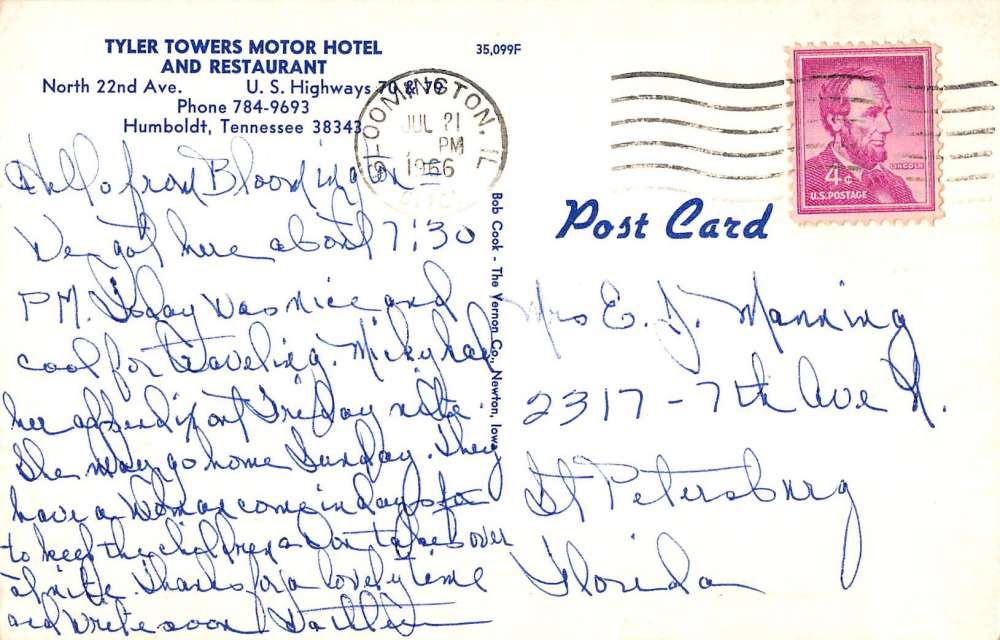 TYLER TOWERS MOTOR HOTEL
AND RESTAURANT
North 22nd Ave. U. S. Highways 70 & 79
Phone 784-9693
Humboldt, Tennessee 38343
35,099F
BLOOMINGTON, IL
JUL 21
PM
1966
4¢
LINCOLN
U.S. POSTAGE
Post Card
Bob Cook - The Vernon Co., Newton, Iowa
Hello from Bloomington
We got here about 7:30
PM. Today was nice and
cool for traveling. Micky had
her appendix out Friday nite.
She may go home Sunday. They
have a woman come in days for
to keep the children & Don takes over
at nite. Thanks for a lovely time
and write soon
Mrs E. J. Manning
2317 - 7th Ave N.
St Petersburg
Florida